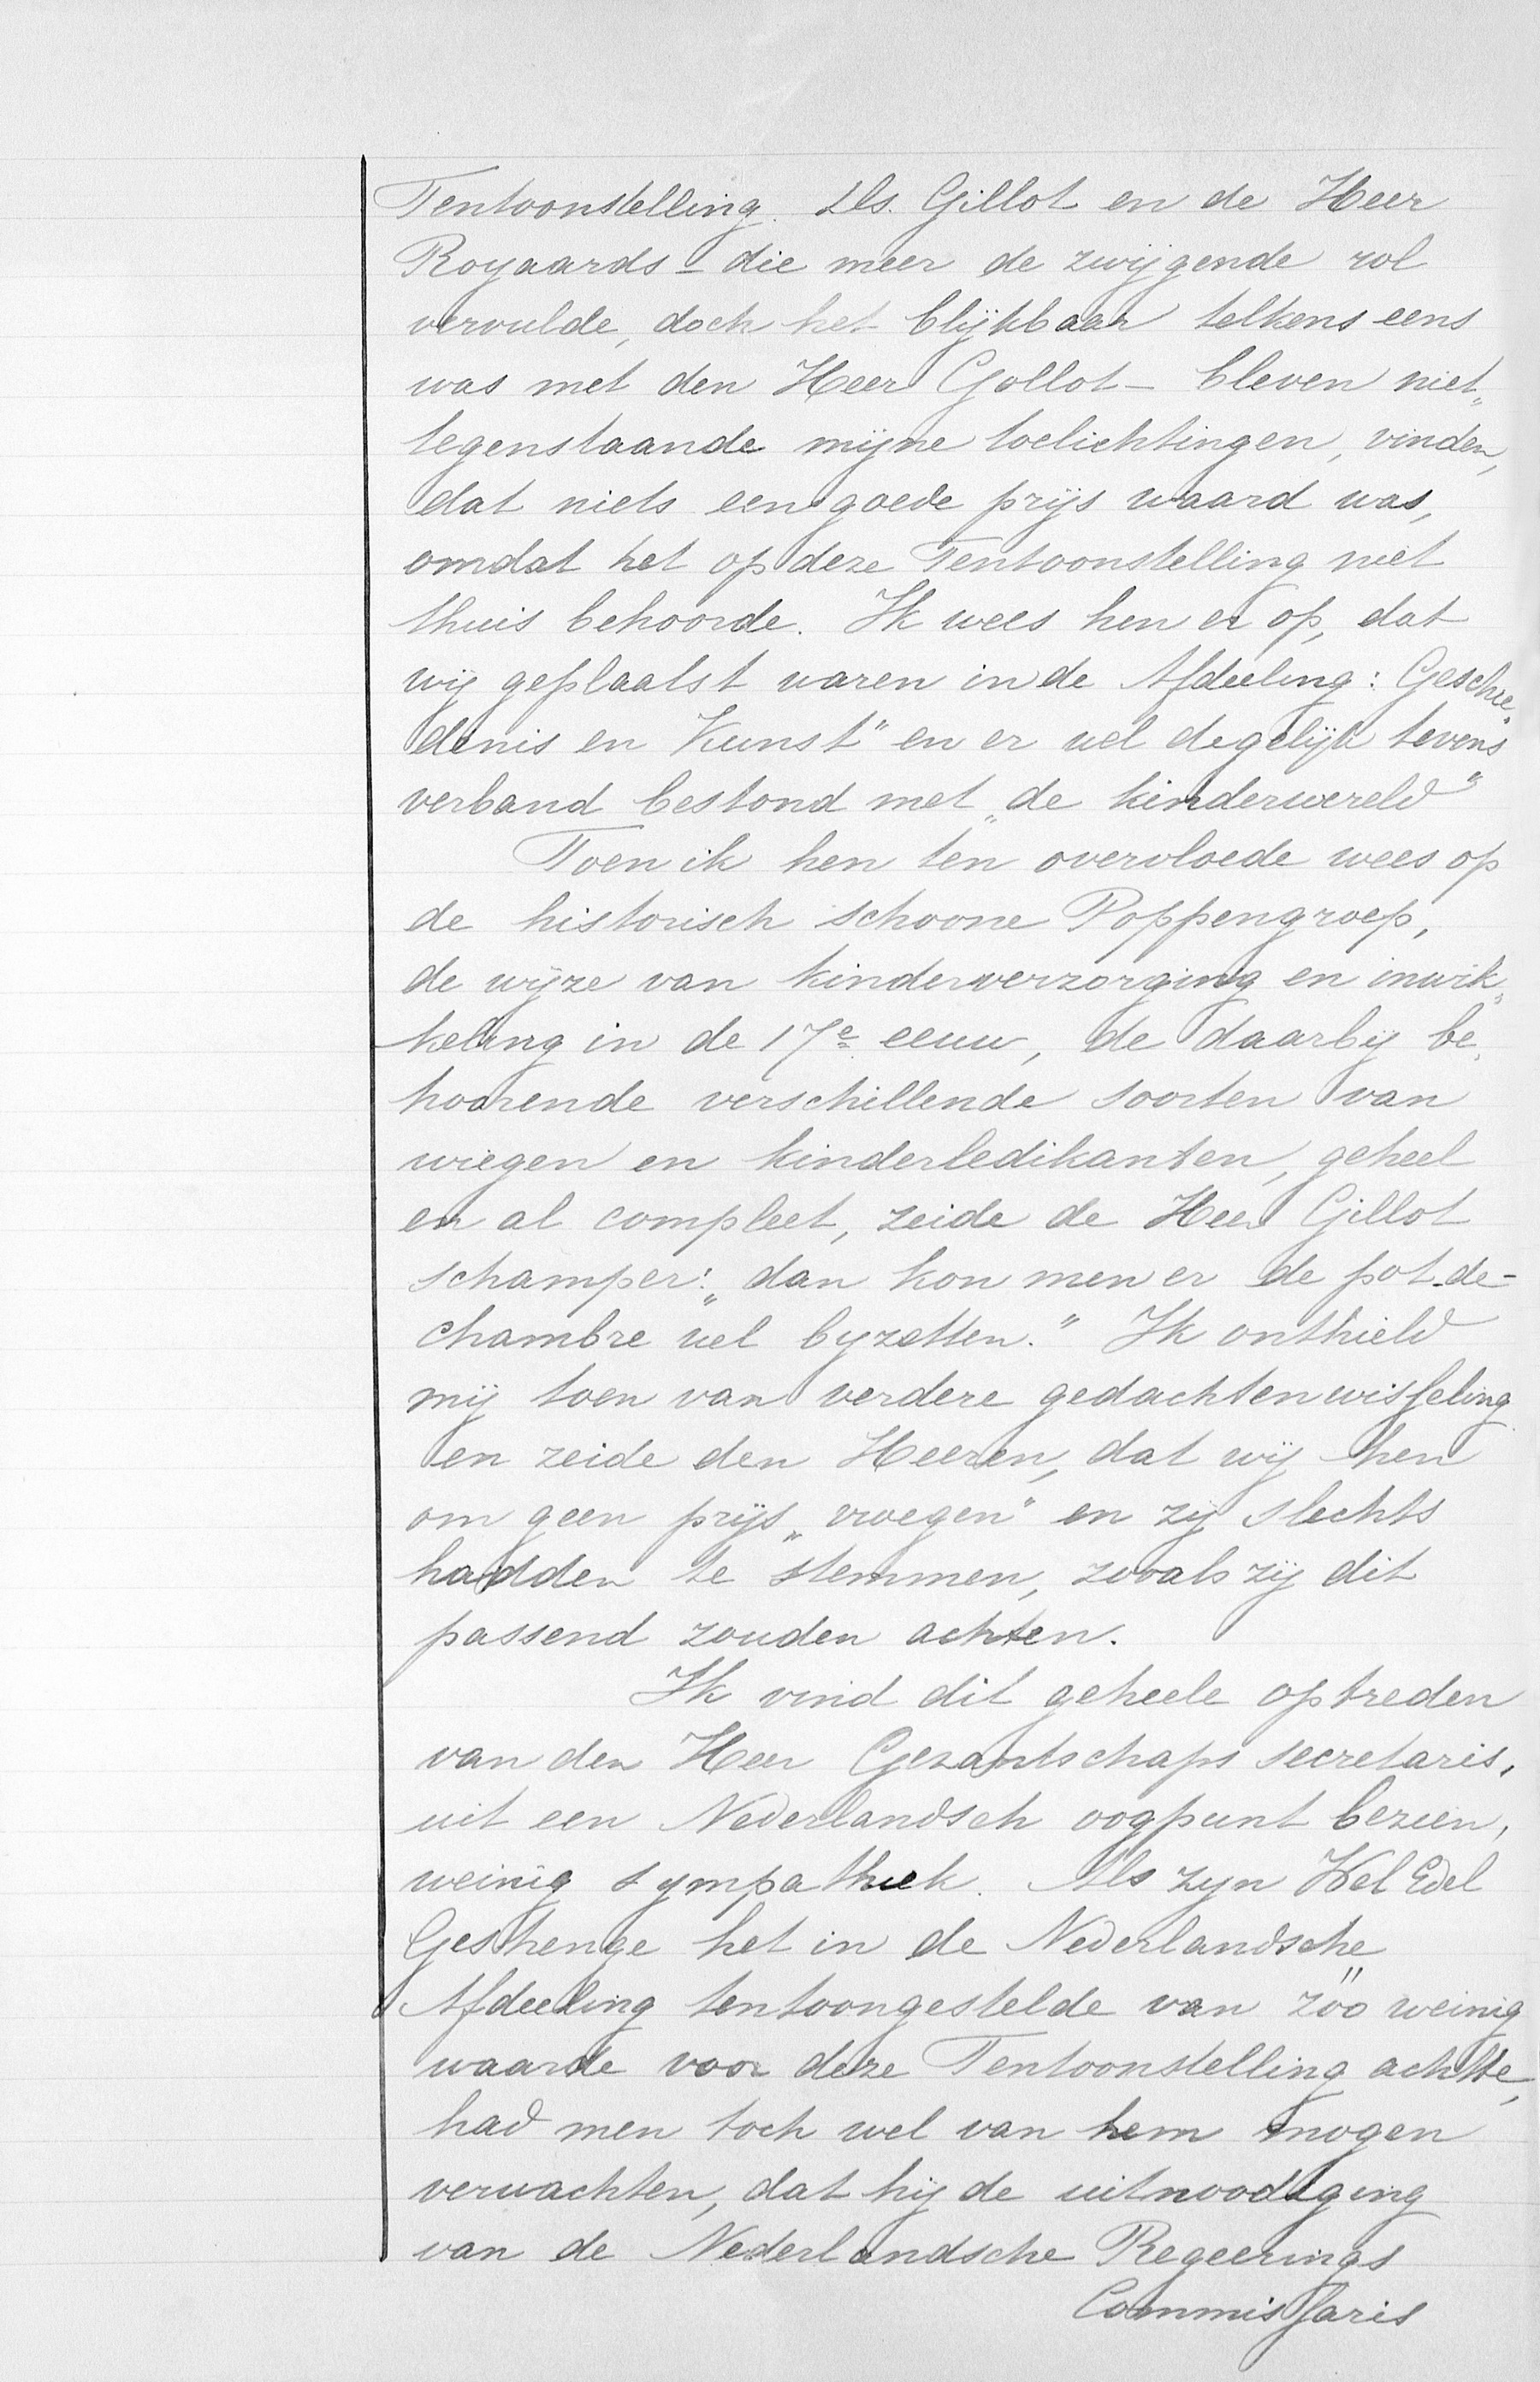 Tentoonstelling. Ds. Gillot en de Heer
Royaards – die meer de zwijgende rol
vervulde, doch het blijkbaar telkens eens
was met den Heer Gollot – bleven niet„
tegenstaande mijne toelichtingen, vinden,
dat niets een goede prijs waard was,
omdat het op deze Tentoonstelling niet
thuis behoorde. Ik wees hen er op, dat
wij geplaatst waren in de Afdeeling: Geschie„
denis en Kunst" en er wel degelijk tevens
verband bestond met „de kinderwereld"
Toen ik hen ten overvloede wees op
de historisch schoone Poppengroep,
de wijze van kinderverzorging en inwik„
keling in de 17e eeuw, de daarbij be„
hoorende verschillende soorten van
wiegen en kinderledikanten, geheel
en al compleet, zeide de Heer Gillot
schamper: „dan kon men er de pot-de-
chambre wel byzetten." Ik onthield
mij toen van verdere gedachtenwisseling
en zeide den Heeren, dat wij hen
om geen prijs „vroegen" en zij slechts
hadden te stemmen, zooals zij dit
passend zouden achten.
Ik vind dit geheele optreden
van den Heer Gezantschaps secretaris,
uit een Nederlandsch oogpunt bezien,
weinig sympathiek. Als zyn Wel Edel
Gestrenge het in de Nederlandsche
Afdeeling tentoongestelde van zóó weinig
waarde voor deze Tentoonstelling achtte,
had men toch wel van hem mogen
verwachten, dat hij de uitnoodiging
van de Nederlandsche Regeerings
Commissaris